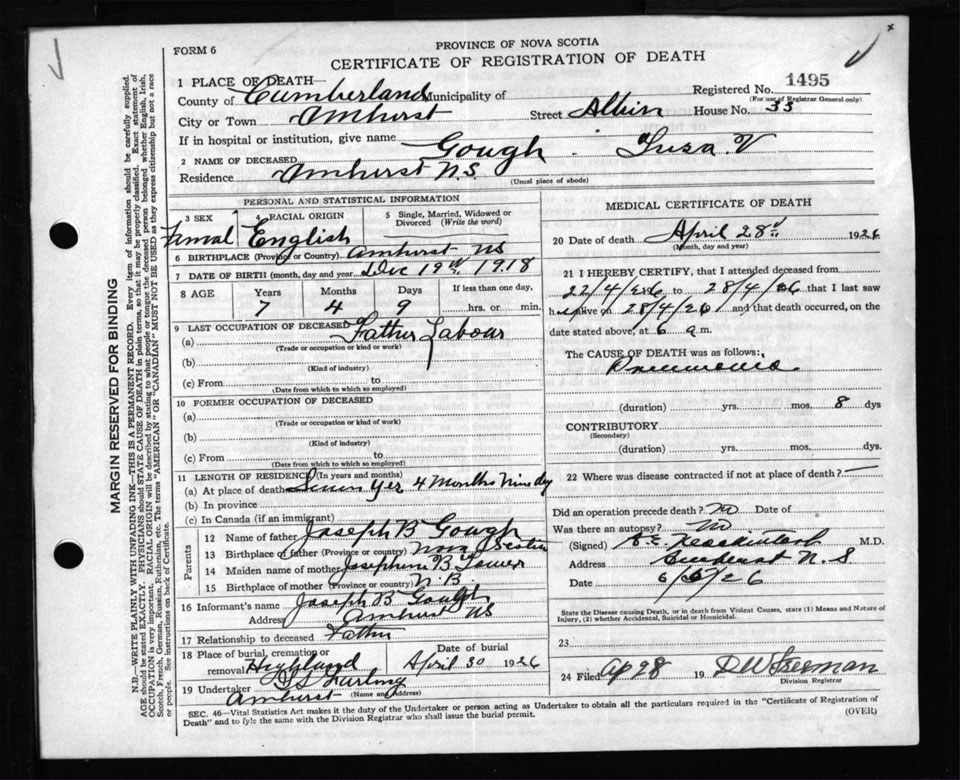 FORM 6
PROVINCE OF NOVA SCOTIA
CERTIFICATE OF REGISTRATION OF DEATH
1495
1 PLACE OF DEATH—
Registered No.
(For use of Registrar General only)
County of Cumberland Municipality of
City or Town Amherst Street Albion House No. 33
If in hospital or institution, give name
2 NAME OF DECEASED Gough V
Residence Amherst N.S.
(Usual place of abode)
PERSONAL AND STATISTICAL INFORMATION
3 SEX 4 RACIAL ORIGIN 5 Single, Married, Widowed or Divorced (Write the word)
Femal English
6 BIRTHPLACE (Province or Country) Amherst NS
7 DATE OF BIRTH (month, day and year) Dec 19th 1918
8 AGE Years Months Days If less than one day,
7 4 9 hrs. or min.
9 LAST OCCUPATION OF DECEASED
(a) Father Labour
(Trade or occupation or kind or work)
(b)
(Kind of industry)
(c) From to
(Date from which to which so employed)
10 FORMER OCCUPATION OF DECEASED
(a)
(Trade or occupation or kind of work)
(b)
(Kind of industry)
(c) From to
(Date from which to which so employed)
11 LENGTH OF RESIDENCE (In years and months)
(a) At place of death Seven yrs 4 Months Nine day
(b) In province
(c) In Canada (if an immigrant)
Parents
12 Name of father Joseph B Gough
13 Birthplace of father (Province or country) Nova Scotia
14 Maiden name of mother Josephine B. Tower
15 Birthplace of mother (Province or country) N.B.
16 Informant's name Joseph B Gough
Address Amherst NS
17 Relationship to deceased Father
18 Place of burial, cremation or removal Highland
Date of burial April 30 1926
19 Undertaker
(Name and Address)
Amherst
MEDICAL CERTIFICATE OF DEATH
20 Date of death April 28" 1926
(Month, day and year)
21 I HEREBY CERTIFY, that I attended deceased from
22/4/26 to 28/4/26 that I last saw
h alive on 28/4/26 and that death occurred, on the
date stated above, at 6 a m.
The CAUSE OF DEATH was as follows:
Pneumonia
(duration) yrs. mos. 8 dys
CONTRIBUTORY
(Secondary)
(duration) yrs. mos. dys
22 Where was disease contracted if not at place of death? —
Did an operation precede death? no Date of
Was there an autopsy? no
(Signed) M.D.
Address Amherst N.S
Date 6/5/26
State the Disease causing Death, or in death from Violent Causes, state (1) Means and Nature of
Injury, (2) whether Accidental, Suicidal or Homicidal.
23
24 Filed Ap 28 19 D W Freeman
Division Registrar
SEC. 46—Vital Statistics Act makes it the duty of the Undertaker or person acting as Undertaker to obtain all the particulars required in the "Certificate of Registration of
Death" and to fyle the same with the Division Registrar who shall issue the burial permit.
(OVER)
MARGIN RESERVED FOR BINDING
N.B.—WRITE PLAINLY WITH UNFADING INK—THIS IS A PERMANENT RECORD. Every item of information should be carefully supplied.
AGE should be stated EXACTLY. PHYSICIANS should STATE CAUSE OF DEATH in plain terms, so that it may be properly classified. Exact statement of
OCCUPATION is very important. RACIAL ORIGIN will be described by stating to what people or tongue the deceased person belonged whether English, Irish,
Scotch, French, German, Russian, Ruthenian, etc. The terms "AMERICAN" OR "CANADIAN" MUST NOT BE USED as they express citizenship but not a race
or people. See instructions on back of Certificate.